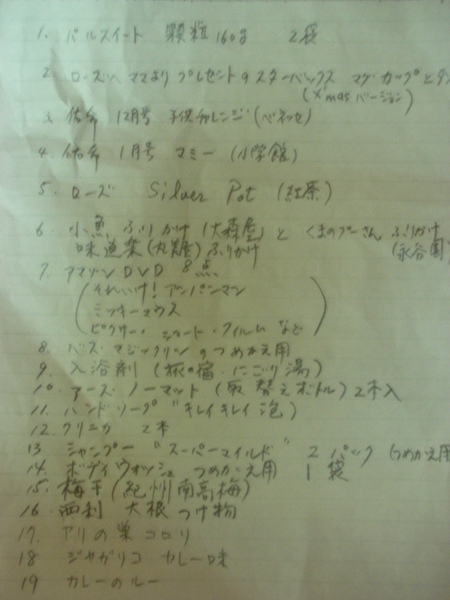 1. パルスイート 顆粒 160g 2袋
2. ローズへ ママより プレゼントの スターバックス マグ・カップと
(X'mas バージョン)
3. 佑希 12月号 子供チャレンジ (ベネッセ)
4. 佑希 1月号 マミー (小学館)
5. ローズ Silver Pot (紅茶)
6. 小魚 ふりかけ (大森屋) と くまのプーさん ふりかけ
味道楽 (丸美屋) ふりかけ (永谷園
7. アマゾン DVD 8点
(それいけ! アンパンマン
ミッキーマウス
ピクサー・ショート・フィルム など)
8. バス・マジックリン のつめかえ用
9. 入浴剤 (旅の宿・にごり湯)
10. アース・ノーマット (取替えボトル) 2本入
11. ハンドソープ "キレイキレイ 泡)
12. クリニカ 2本
13. シャンプー "スーパーマイルド" 2パック (つめかえ用
14. ボディウォッシュ つめかえ用 1袋
15. 梅干 (紀州南高梅)
16. 西利 大根 つけ物
17. アリの巣 コロリ
18 ジャガリコ カレー味
19 カレーのルー